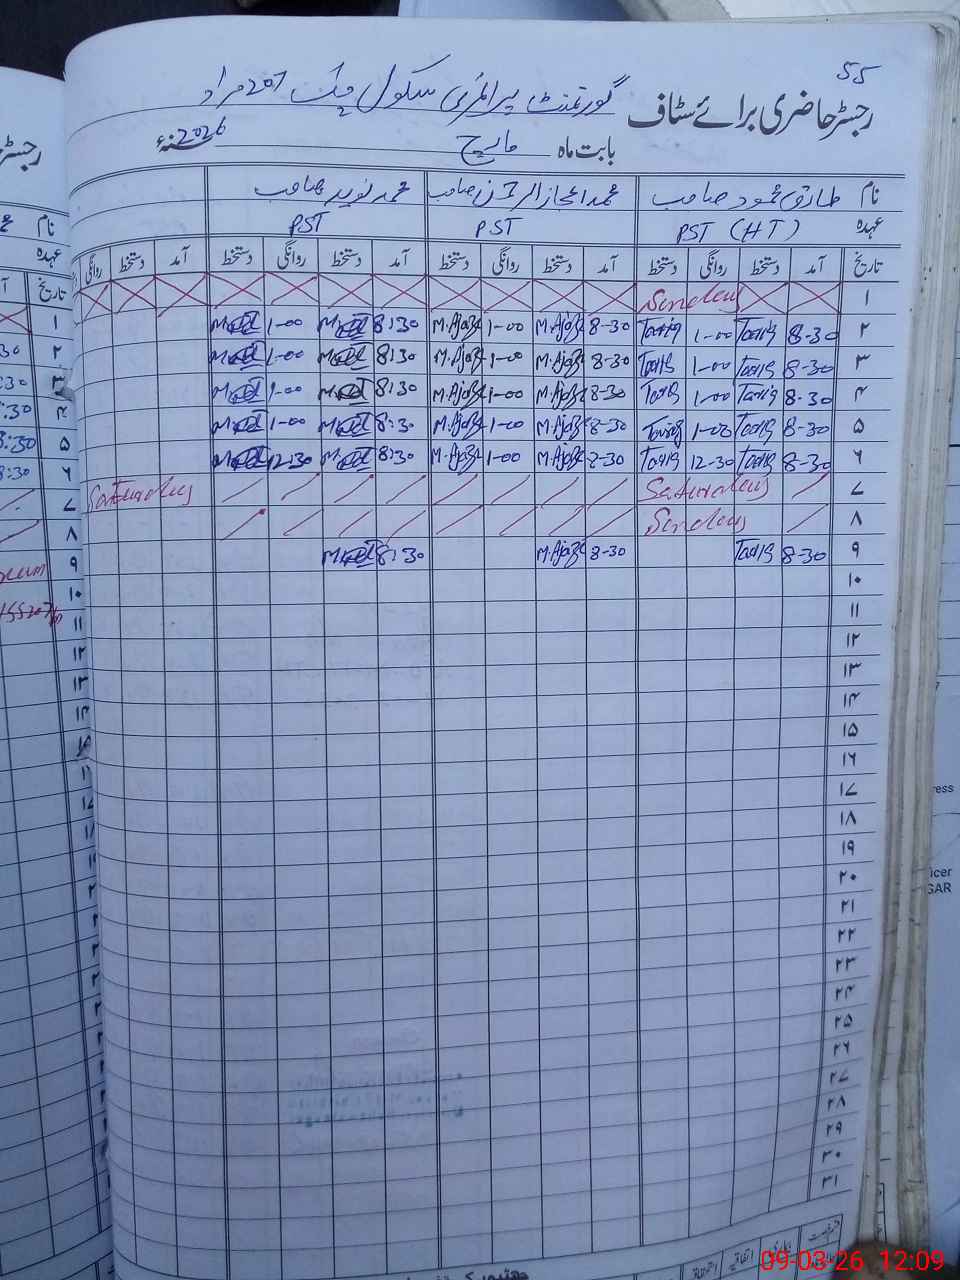 55
رجسٹر حاضری برائے سٹاف گورنمنٹ پرائمری سکول چک 207 مراد
بابت ماہ مارچ سنہء 2026
نام طارق محمود صاحب محمد اعجاز الرحمن صاحب محمد نوید صاحب
عہدہ PST (HT) PST PST
تاریخ آمد دستخط روانگی دستخط آمد دستخط روانگی دستخط آمد دستخط روانگی دستخط آمد دستخط روانگی
۱ Sunday
۲ 8-30 Tariq 1-00 Tariq 8-30 M.Ajaz 1-00 M.Ajaz 8:30 1-00
۳ 8-30 Tariq 1-00 Tariq 8-30 M.Ajaz 1-00 M.Ajaz 8:30 1-00
۴ 8-30 Tariq 1-00 Tariq 8-30 M.Ajaz 1-00 M.Ajaz 8:30 1-00
۵ 8-30 Tariq 1-00 Tariq 8-30 M.Ajaz 1-00 M.Ajaz 8:30 1-00
۶ 8-30 Tariq 12-30 Tariq 8-30 M.Ajaz 1-00 M.Ajaz 8:30 12-30
۷ Saturday Saturday
۸ Sunday
۹ 8-30 Tariq 8-30 M.Ajaz 8:30
۱۰
۱۱
۱۲
۱۳
۱۴
۱۵
۱۶
۱۷
۱۸
۱۹
۲۰
۲۱
۲۲
۲۳
۲۴
۲۵
۲۶
۲۷
۲۸
۲۹
۳۰
۳۱
09-03-26 12:09